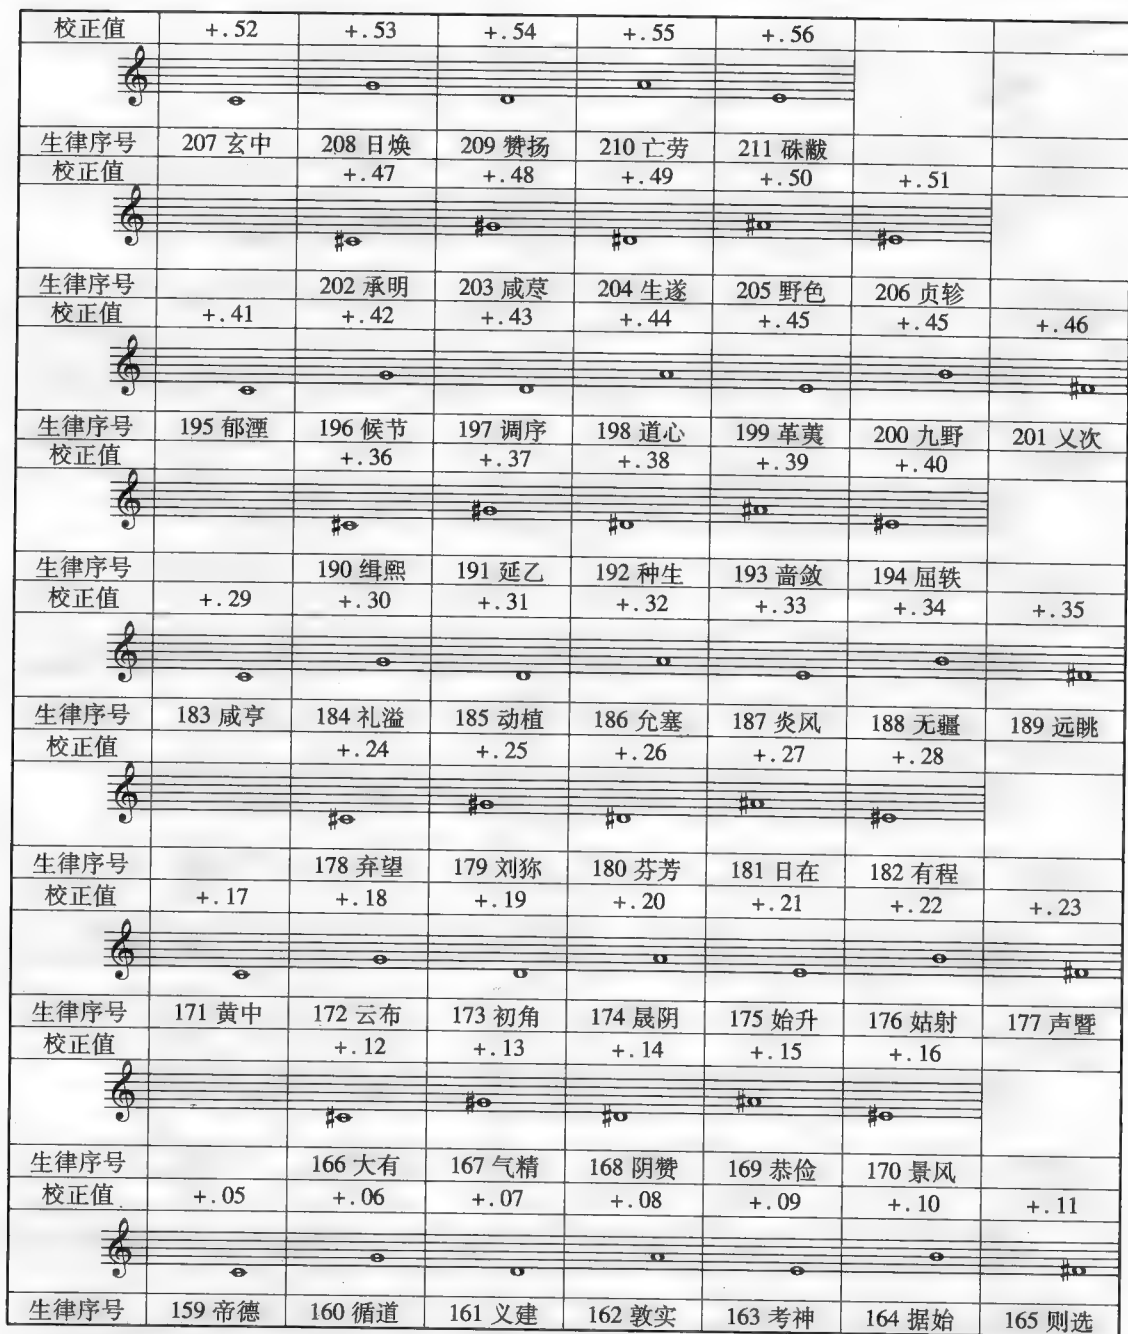 校正值 +.52 +.53 +.54 +.55 +.56
生律序号 207 玄中 208 日焕 209 赞扬 210 亡劳 211 硃黻
校正值 +.47 +.48 +.49 +.50 +.51
生律序号 202 承明 203 咸荩 204 生遂 205 野色 206 贞轸
校正值 +.41 +.42 +.43 +.44 +.45 +.45 +.46
生律序号 195 郁湮 196 候节 197 调序 198 道心 199 革荑 200 九野 201 乂次
校正值 +.36 +.37 +.38 +.39 +.40
生律序号 190 缉熙 191 延乙 192 种生 193 啬敛 194 屈轶
校正值 +.29 +.30 +.31 +.32 +.33 +.34 +.35
生律序号 183 咸亨 184 礼溢 185 动植 186 允塞 187 炎风 188 无疆 189 远眺
校正值 +.24 +.25 +.26 +.27 +.28
生律序号 178 弃望 179 刘狝 180 芬芳 181 日在 182 有程
校正值 +.17 +.18 +.19 +.20 +.21 +.22 +.23
生律序号 171 黄中 172 云布 173 初角 174 晟阴 175 始升 176 姑射 177 声暨
校正值 +.12 +.13 +.14 +.15 +.16
生律序号 166 大有 167 气精 168 阴赞 169 恭俭 170 景风
校正值 +.05 +.06 +.07 +.08 +.09 +.10 +.11
生律序号 159 帝德 160 循道 161 义建 162 敦实 163 考神 164 据始 165 则选